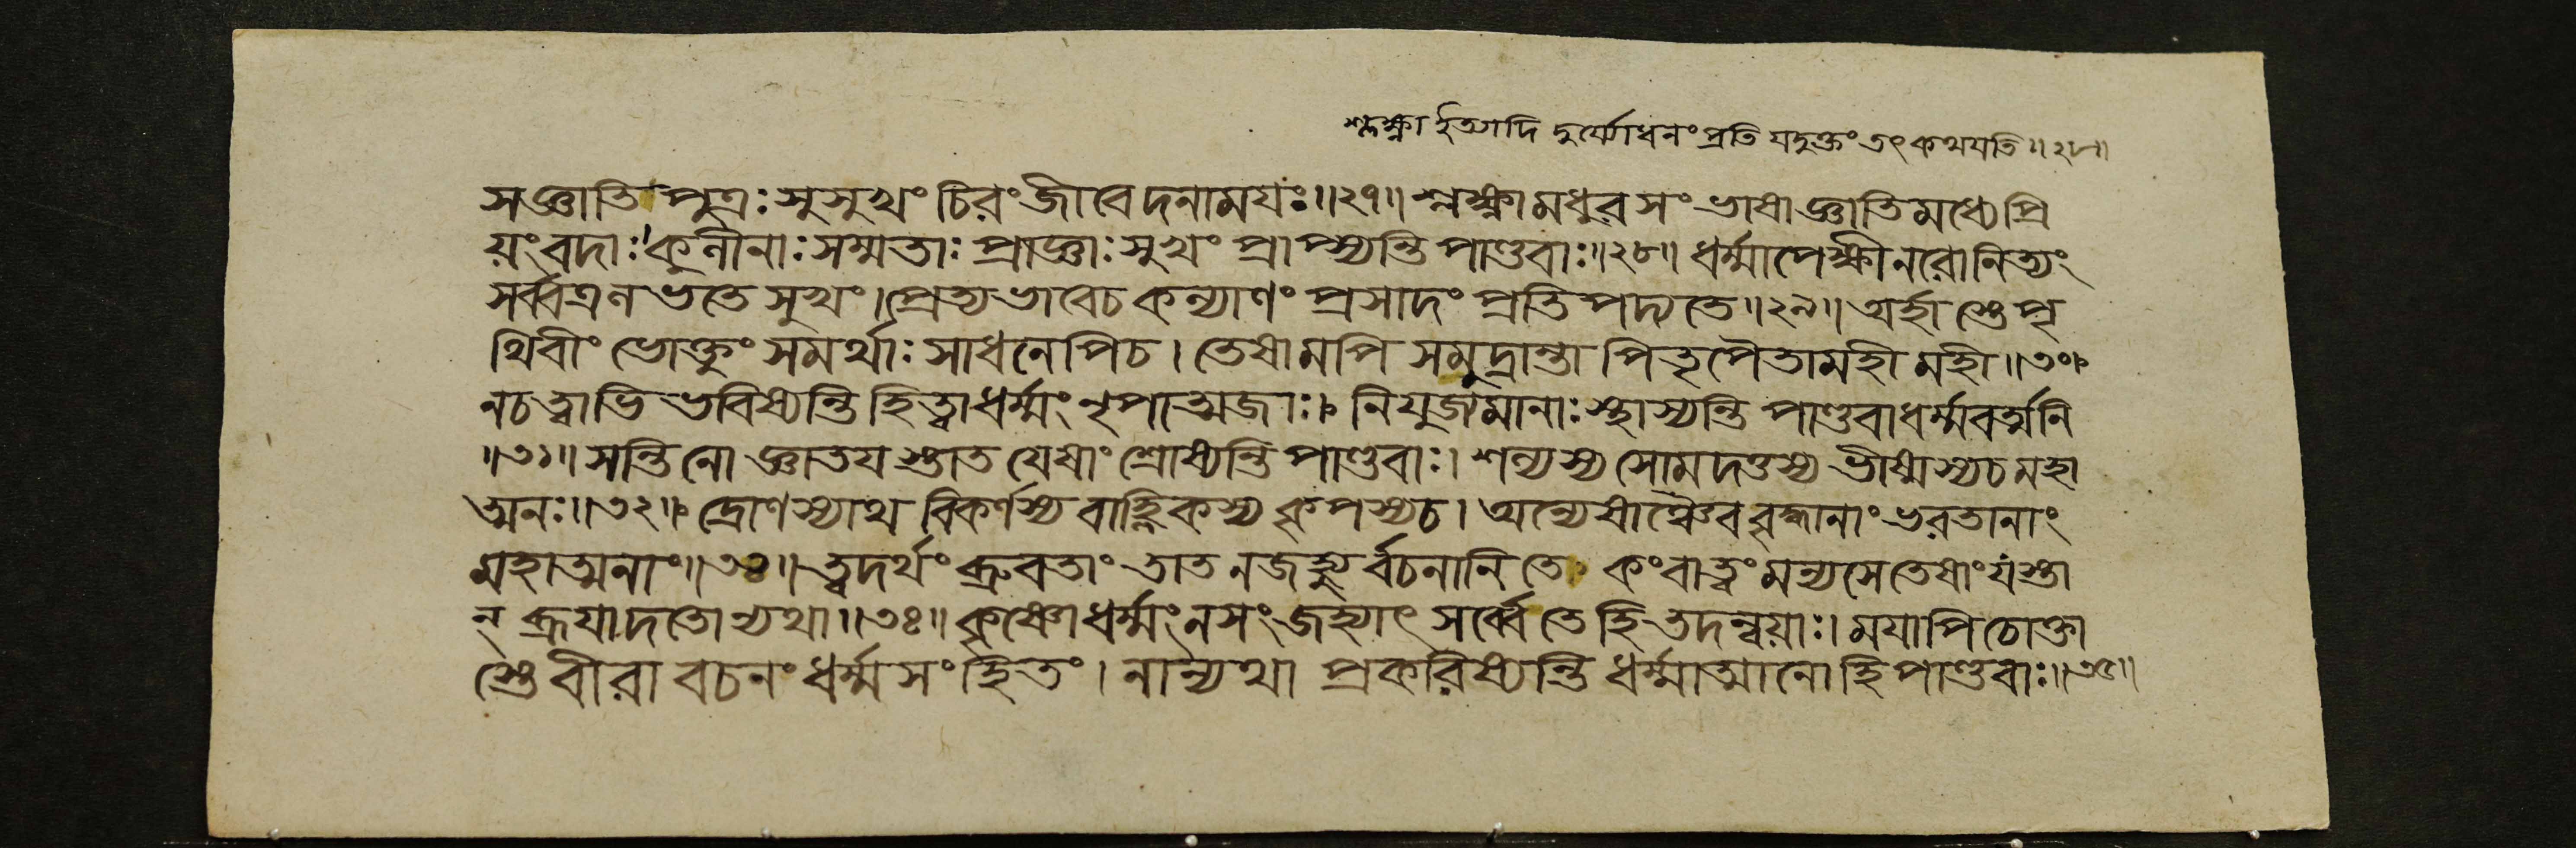 শ্লক্ষ্ণা ইত্যাদি দুর্য্যোধনং প্রতি যদুক্তং তৎ কথযতি ॥২৮॥
সজ্ঞাতি পুত্রঃ সুসুখং চিরং জীবেদনামযঃ ॥২৭॥ শ্লক্ষ্ণা মধুর সংভাষা জ্ঞাতিমধ্যে প্রি
য়ংবদাঃ । কুলীনাঃ সম্মতাঃ প্রাজ্ঞাঃ সুখং প্রাপ্স্যন্তি পাণ্ডবাঃ ॥২৮॥ ধর্ম্মাপেক্ষী নরো নিত্যং
সর্ব্বত্র লভতে সুখং । প্রেত্যভাবে চ কল্যাণং প্রসাদং প্রতিপদ্যতে ॥২৯॥ অর্হাস্তে পৃ
থিবীং ভোক্তুং সমর্থাঃ সাধনেপি চ । তেষামপি সমুদ্রান্তা পিতৃপৈতামহী মহী ॥৩০॥
নচ ত্বাভি ভবিষ্যন্তি হিত্বা ধর্ম্মং নৃপাত্মজাঃ । নিযুজ্যমানাঃ স্থাস্যন্তি পাণ্ডবা ধর্ম্মবর্ত্মনি
॥৩১॥ সন্তি নো জ্ঞাতযস্তাত যেষাং শ্রোষ্যন্তি পাণ্ডবাঃ । শল্যস্য সোমদত্তস্য ভীষ্মস্য চ মহা
ত্মনঃ ॥৩২॥ দ্রোণস্যাথ বিকর্ণস্য বাহ্লিকস্য কৃপস্য চ । অন্যেষাঞ্চৈব বৃদ্ধানাং ভরতানাং
মহাত্মনাং ॥৩৩॥ ত্বদর্থং ব্রুবতাং তাত ন জহ্যুর্বচনানি তে কং বা ত্বং মন্যসে তেষাং যস্তা
ন্ ব্রূযাদতোন্যথা ॥৩৪॥ কৃষ্ণো ধর্ম্মং ন সংজহ্যাৎ সর্ব্বে তে হি তদন্বয়াঃ । মযাপি চোক্তা
স্তে বীরা বচনং ধর্ম্মসংহিতং । নান্যথা প্রকরিষ্যন্তি ধর্ম্মাত্মানো হি পাণ্ডবাঃ ॥৩৫॥